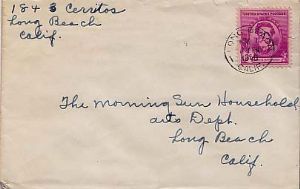 184 3 Cerritos
Long Beach
Calif.
UNITED STATES POSTAGE
LONG BEACH
CALIF.
The Morning Sun Household
arts Dept.
Long Beach
Calif.